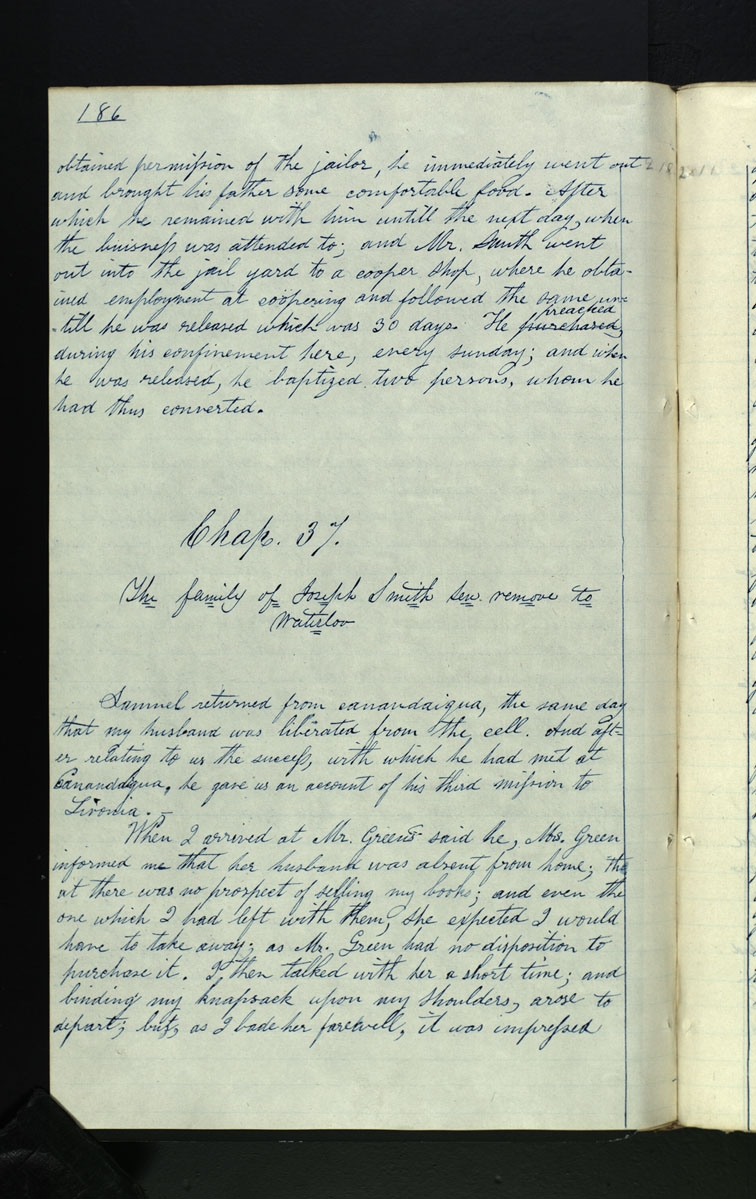 186
obtained permission of the jailor, he immediately went out
and brought his father some comfortable food. After
which he remained with him untill the next day, when
the buisness was attended to; and Mr. Smith went
out into the jail yard to a cooper shop, where he obta-
ined employment at coopering and followed the same un-
-till he was released which was 30 days. He purchased, preached
during his confinement here, every sunday; and when
he was released, he baptized two persons, whom he
had thus converted.
Chap. 37.
The family of Joseph Smith Sen. remove to
Waterloo
Samuel returned from canandaigua, the same day
that my husband was liberated from the cell. And aft-
er relating to us the success, with which he had met at
Canandaigua, he gave us an account of his third mission to
Livonia.
When I arrived at Mr. Greens said he, Mrs. Green
informed me that her husband was absent from home; th
at there was no prospect of selling my books; and even the
one which I had left with them, she expected I would
have to take away; as Mr. Green had no disposition to
purchase it. I then talked with her a short time; and
binding my knapsack upon my shoulders, arose to
depart; but, as I bade her farewell, it was impressed